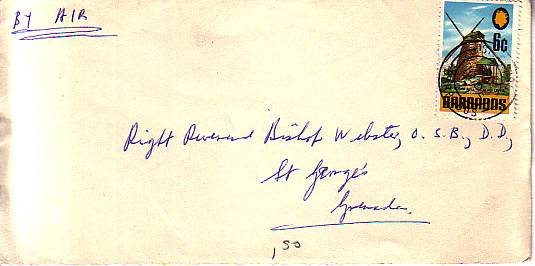 BY AIR
6c
BARBADOS
Right Reverend Bishop Webster, O.S.B., D.D.,
St George's
Grenada
1,50